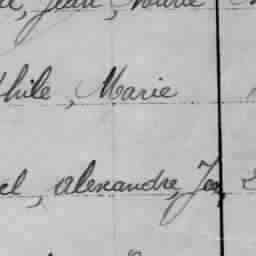 Jean, Marie
thile, Marie
el, alexandre, Jea